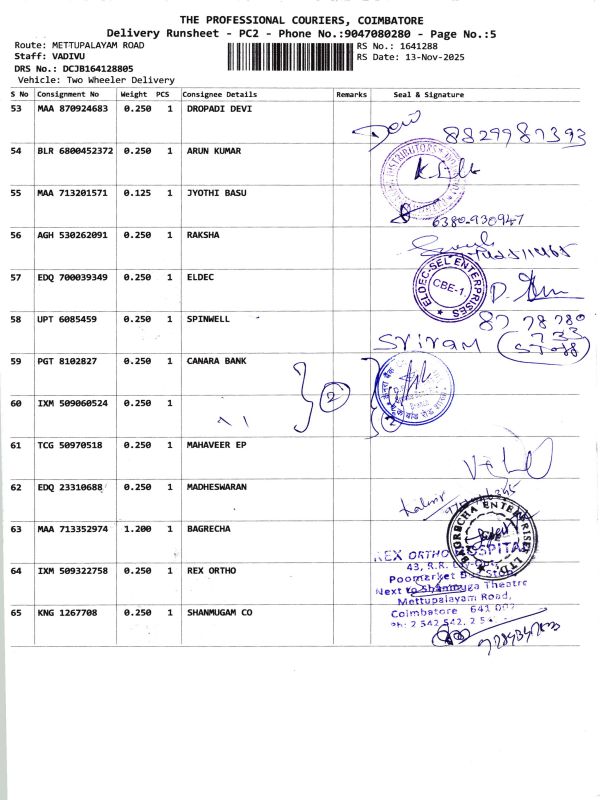 THE PROFESSIONAL COURIERS, COIMBATORE
Delivery Runsheet - PC2 - Phone No.:9047080280 - Page No.:5
Route: METTUPALAYAM ROAD
RS No.: 1641288
Staff: VADIVU
RS Date: 13-Nov-2025
DRS No.: DCJB164128805
Vehicle: Two Wheeler Delivery
S No Consignment No Weight PCS Consignee Details Remarks Seal & Signature
53 MAA 870924683 0.250 1 DROPADI DEVI
8829987393
54 BLR 6800452372 0.250 1 ARUN KUMAR
DISTRIBUTORS
55 MAA 713201571 0.125 1 JYOTHI BASU
6380-930947
56 AGH 530262091 0.250 1 RAKSHA
57 EDQ 700039349 0.250 1 ELDEC
ELDEC-SEL ENTERPRISES
CBE-1
58 UPT 6085459 0.250 1 SPINWELL
87 78780
733
Sriram
Staff
59 PGT 8102827 0.250 1 CANARA BANK
2
60 IXM 509060524 0.250 1
61 TCG 50970518 0.250 1 MAHAVEER EP
62 EDQ 23310688 0.250 1 MADHESWARAN
63 MAA 713352974 1.200 1 BAGRECHA
BAGRECHA ENTERPRISES LTD.
64 IXM 509322758 0.250 1 REX ORTHO
REX ORTHO HOSPITAL
43, R.R.
Poomarket
Next to Shanmuga Theatre
Mettupalayam Road,
Coimbatore 641 002
Ph: 2 542 542, 2 5
65 KNG 1267708 0.250 1 SHANMUGAM CO